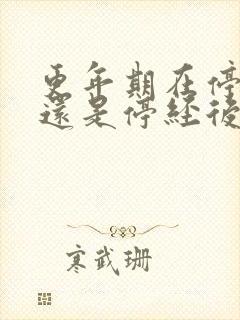 更年期在停
還是停經後
寒武珊